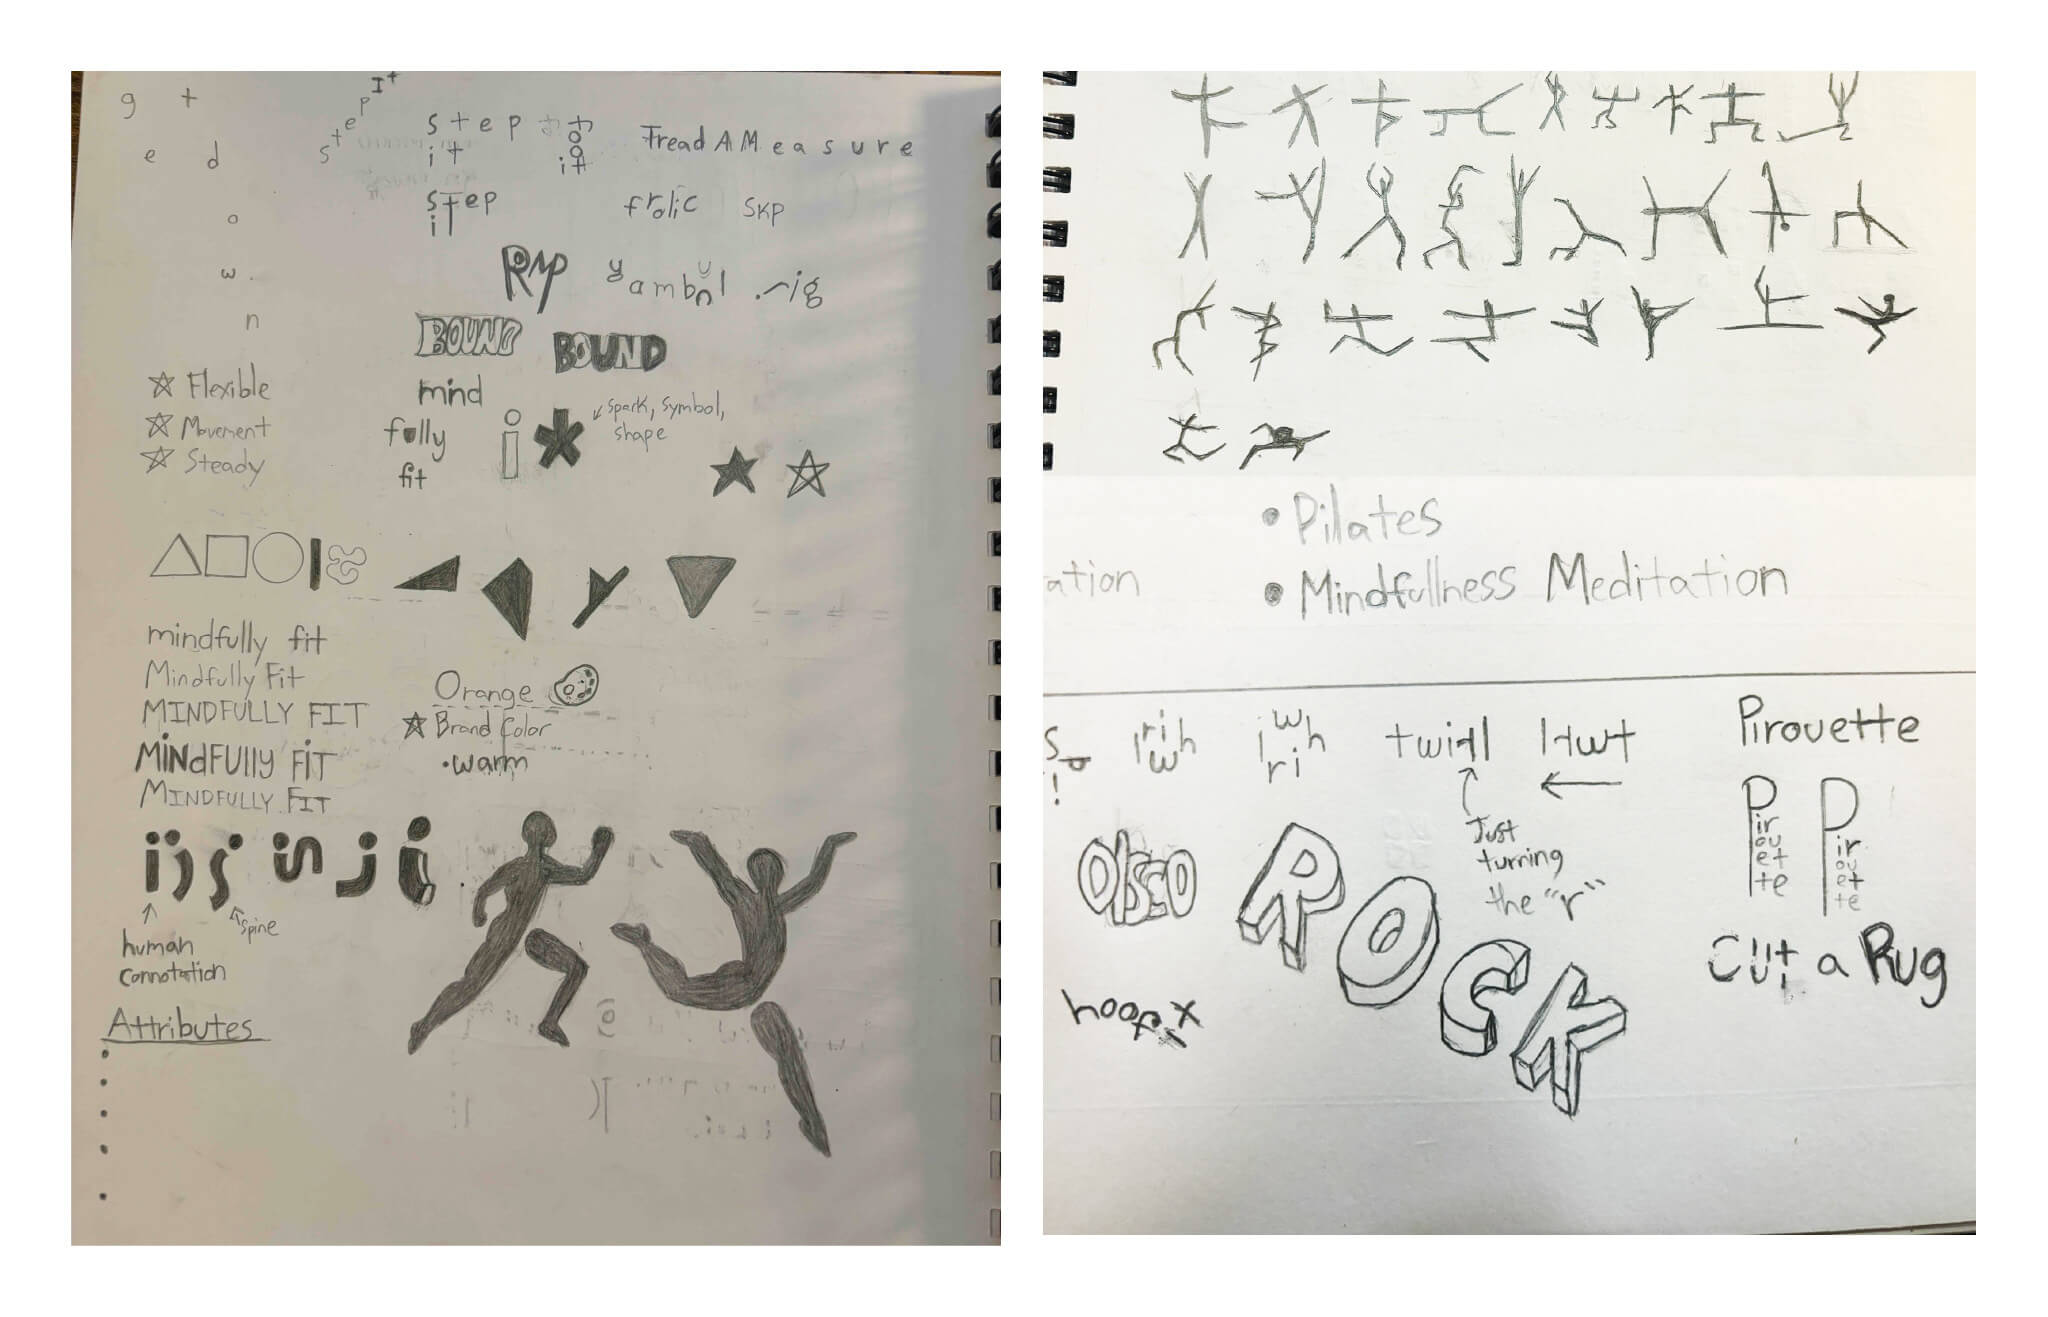 g t
e d
o
w.
n
step It
step
it
too
it
Tread A Measure
step
it
frolic
SKP
gambol
.rig
BOUND
BOUND
Flexible
Movement
Steady
mind
fully
fit
i*
spark, symbol,
shape
mindfully fit
Mindfully Fit
MINDFULLY FIT
MINdFUlly FiT
MINDFULLY FIT
Orange
Brand Color
•warm
human
connotation
spine
Attributes
• Pilates
ation
• Mindfullness Meditation
whirl
whirl
twirl
ltwt
Just
turning
the "r"
Pirouette
Pirouette
Pirouette
DISCO
ROCK
Cut a Rug